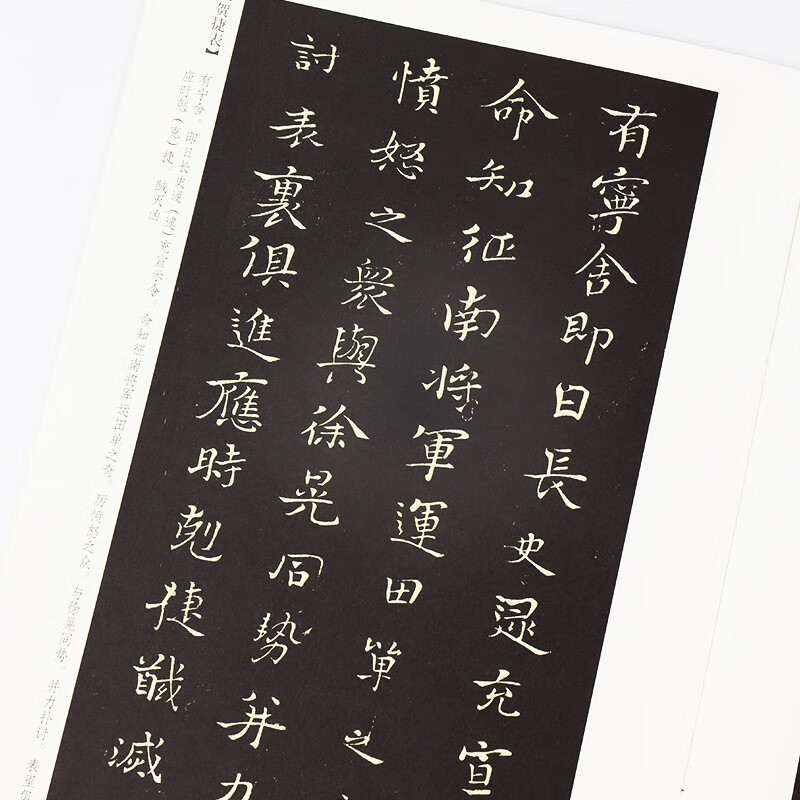 有寧舍即日長史逯充宣
命知征南將軍運田單之
憤怒之衆與徐晃同勢并力
討表裏俱進應時剋捷馘滅
贺捷表】
有宁舍。即日长史逯（逯）充宣示令。命知征南将军运田单之奇。厉愤怒之众。与徐晃同势。并力扑讨。表里俱
应时剋（克）捷。馘灭凶